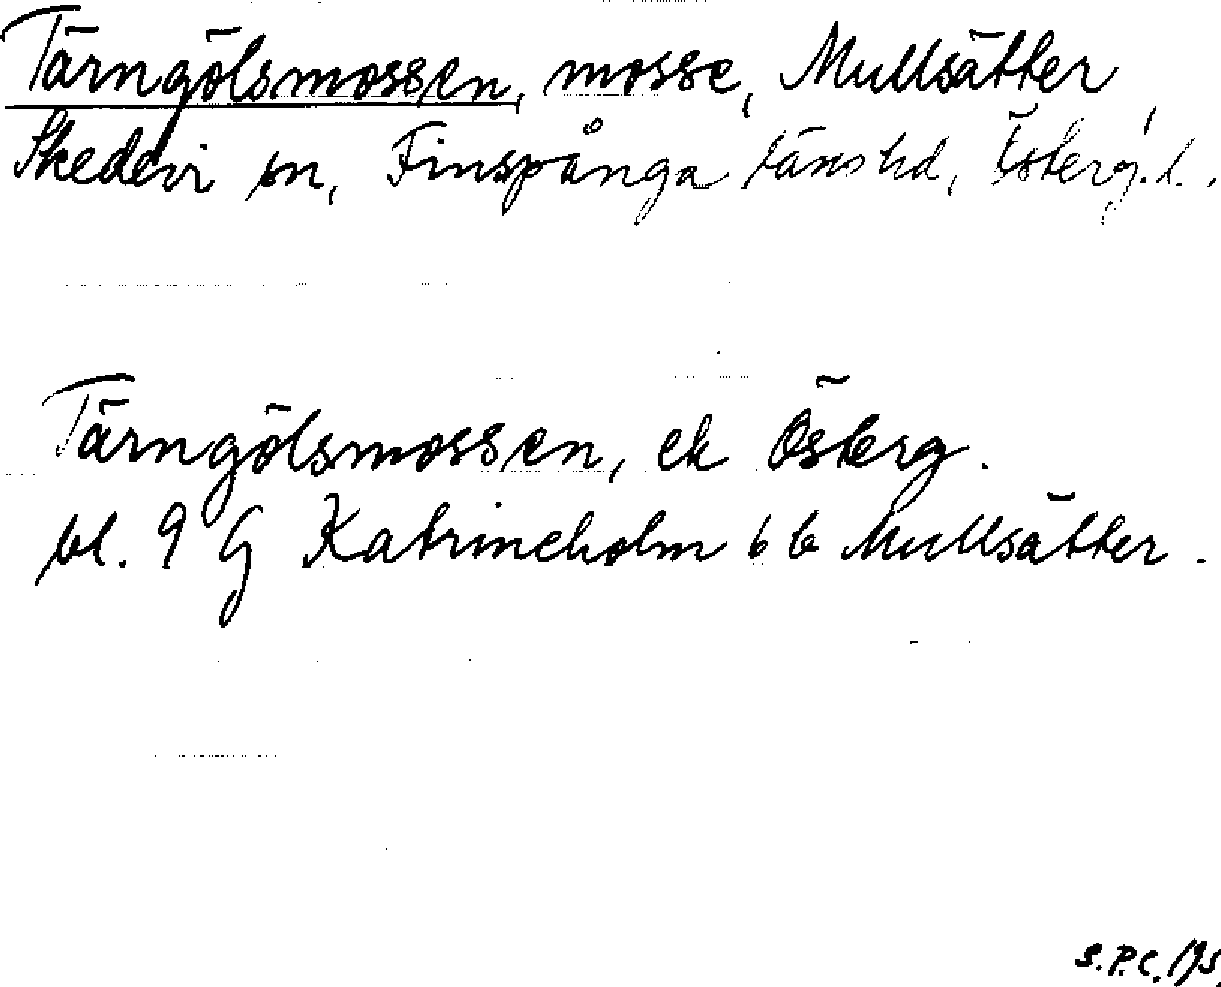 Tärngölsmossen, mosse, Mullsätter,
Skedevi sn, Finspånga läns hd, Österg. l.
Tärngölsmossen, ek Österg.
bl. 9 G Katrineholm 6 b Mullsätter.
S.P.C.